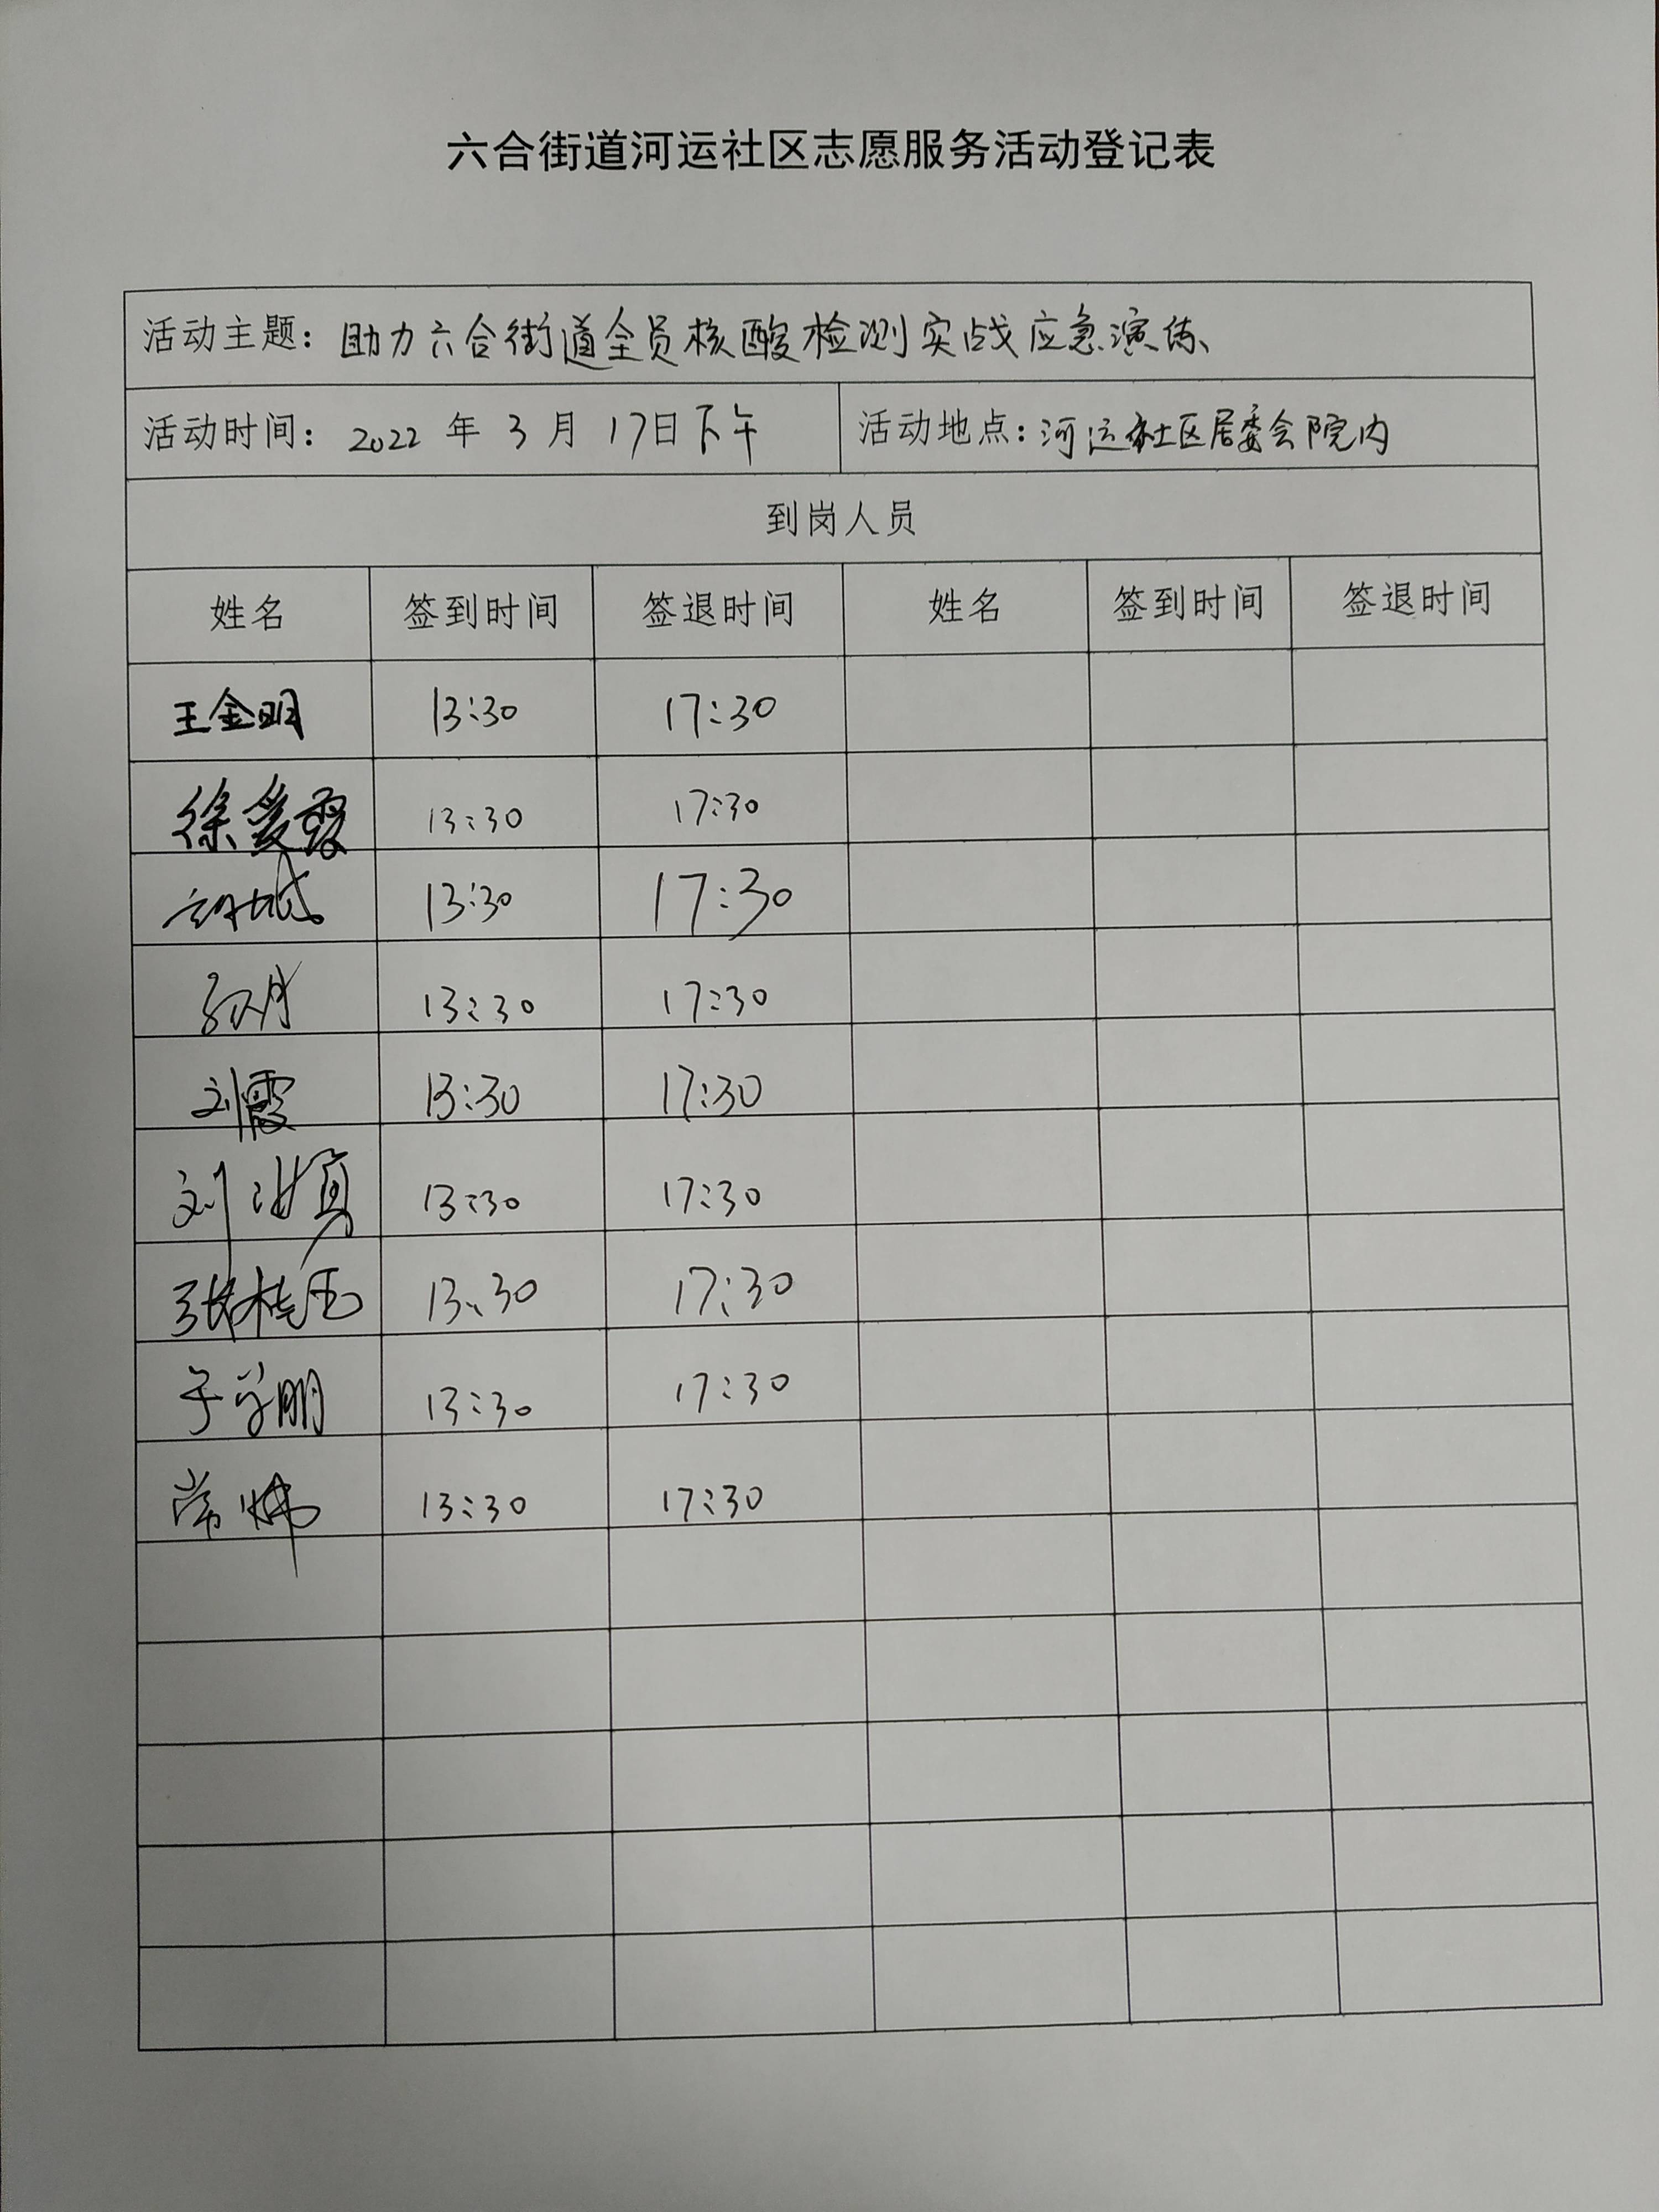 六合街道河运社区志愿服务活动登记表
活动主题：助力六合街道全员核酸检测实战应急演练
活动时间：2022年3月17日下午 活动地点：河运社区居委会院内
到岗人员
姓名 签到时间 签退时间 姓名 签到时间 签退时间
王金明 13:30 17:30
徐爱霞 13:30 17:30
13:30 17:30
孙月 13:30 17:30
刘霞 13:30 17:30
刘 13:30 17:30
张桂玉 13:30 17:30
于学朋 13:30 17:30
常炜 13:30 17:30